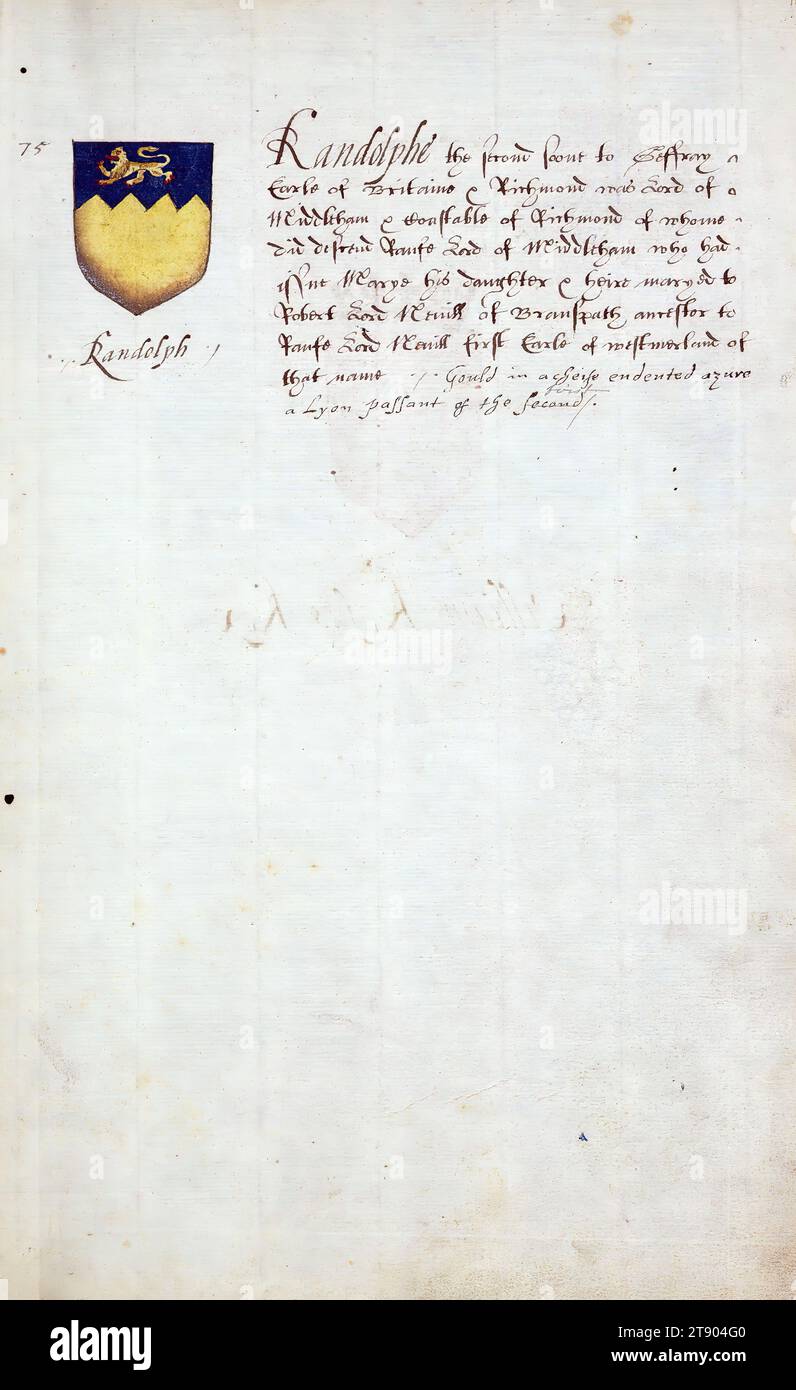 75
Randolphe the second sone to Geffray
Earle of Britaine & Richmond was Lord of
Middleham & Constable of Richmond of whome
did descend Raufe Lord of Middleham who had
issue Marye his daughter & heire maryed to
Robert Lord Nevill of Branspath ancestor to
Raufe Lord Nevill first Earle of westmerland of
that name Gould in a cheife endented azure
a Lyon passant of the second first
Randolph
alamy
alamy
Image ID: 2T904G0
www.alamy.com